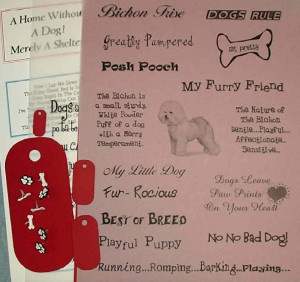 A Home Without
A Dog!
Merely A Shelter
Bichon Frise
DOGS RULE
Greatly Pampered
Sit Pretty
Posh Pooch
My Furry Friend
Dogs
The Bichon is
a small sturdy
White Powder
Puff of a dog
with a Merry
Temperament.
The Nature of
The Bichon
Gentle...Playful...
Affectionate...
Sensitive...
My Little Dog
Fur-Rocious
Dogs Leave
Paw Prints
On Your Heart
Best of Breed
Playful Puppy
No No Bad Dog!
Running...Romping...Barking...Playing...